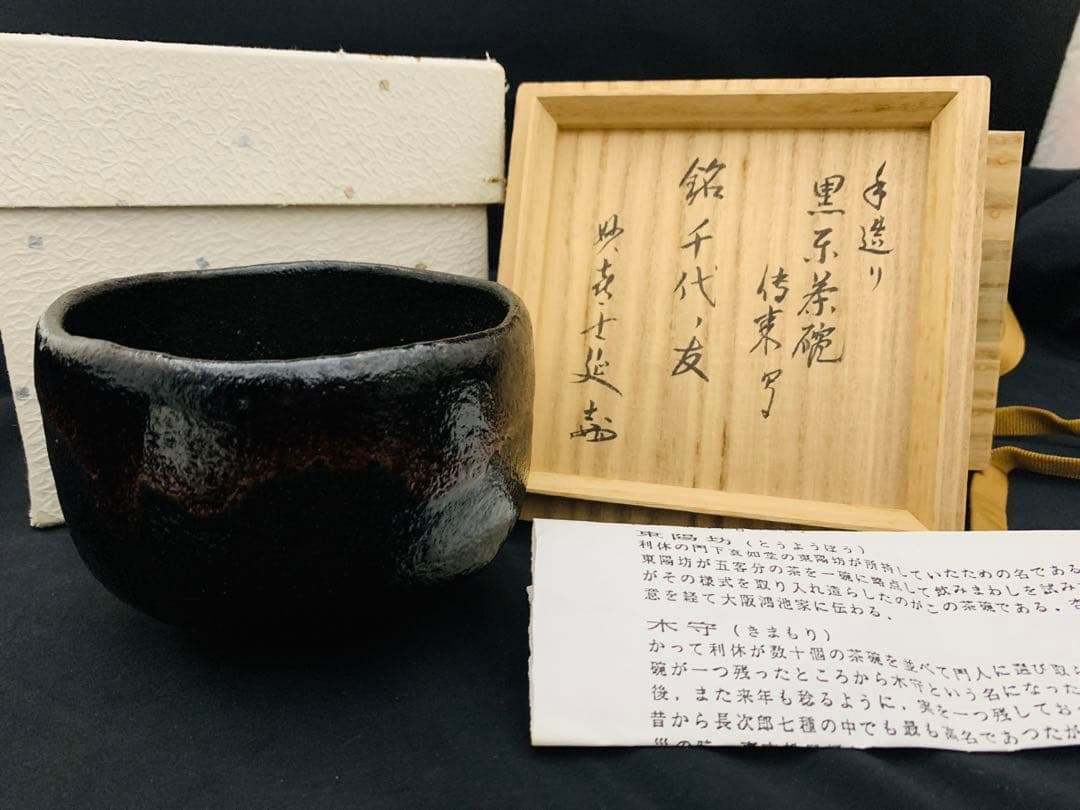 手造り
黒楽茶碗
銘 千代ノ友
東陽坊(とうようぼう)
利休の門下真如堂の東陽坊が所持していたための名である
東陽坊が五客分の茶を一碗に
して飲みまわしを試み
がその様式を取り入れ造らしたのがこの茶碗である.
意を経て大阪鴻池家に伝わる.
木守(きまもり)
かって利休が数十個の茶碗を並べて門人に選び取ら
碗が一つ残ったところから木守という名になった
後,また来年も稔るように,実を一つ残してお
昔から長次郎七種の中でも最も高名であつたが